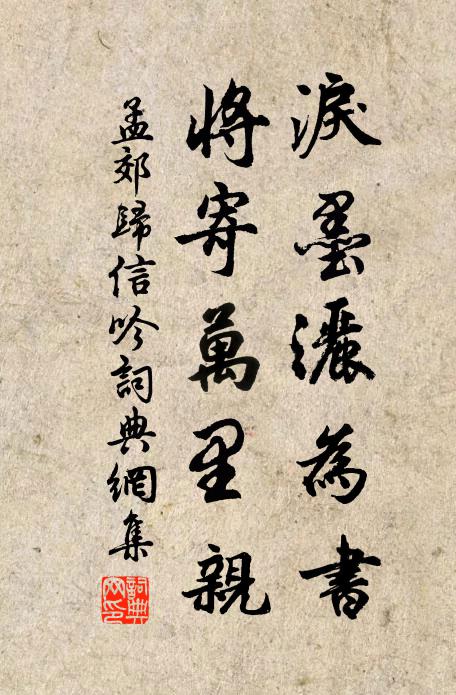 淚墨灑為書
將寄萬里親
孟郊歸信吟詞典網集
詞典網印